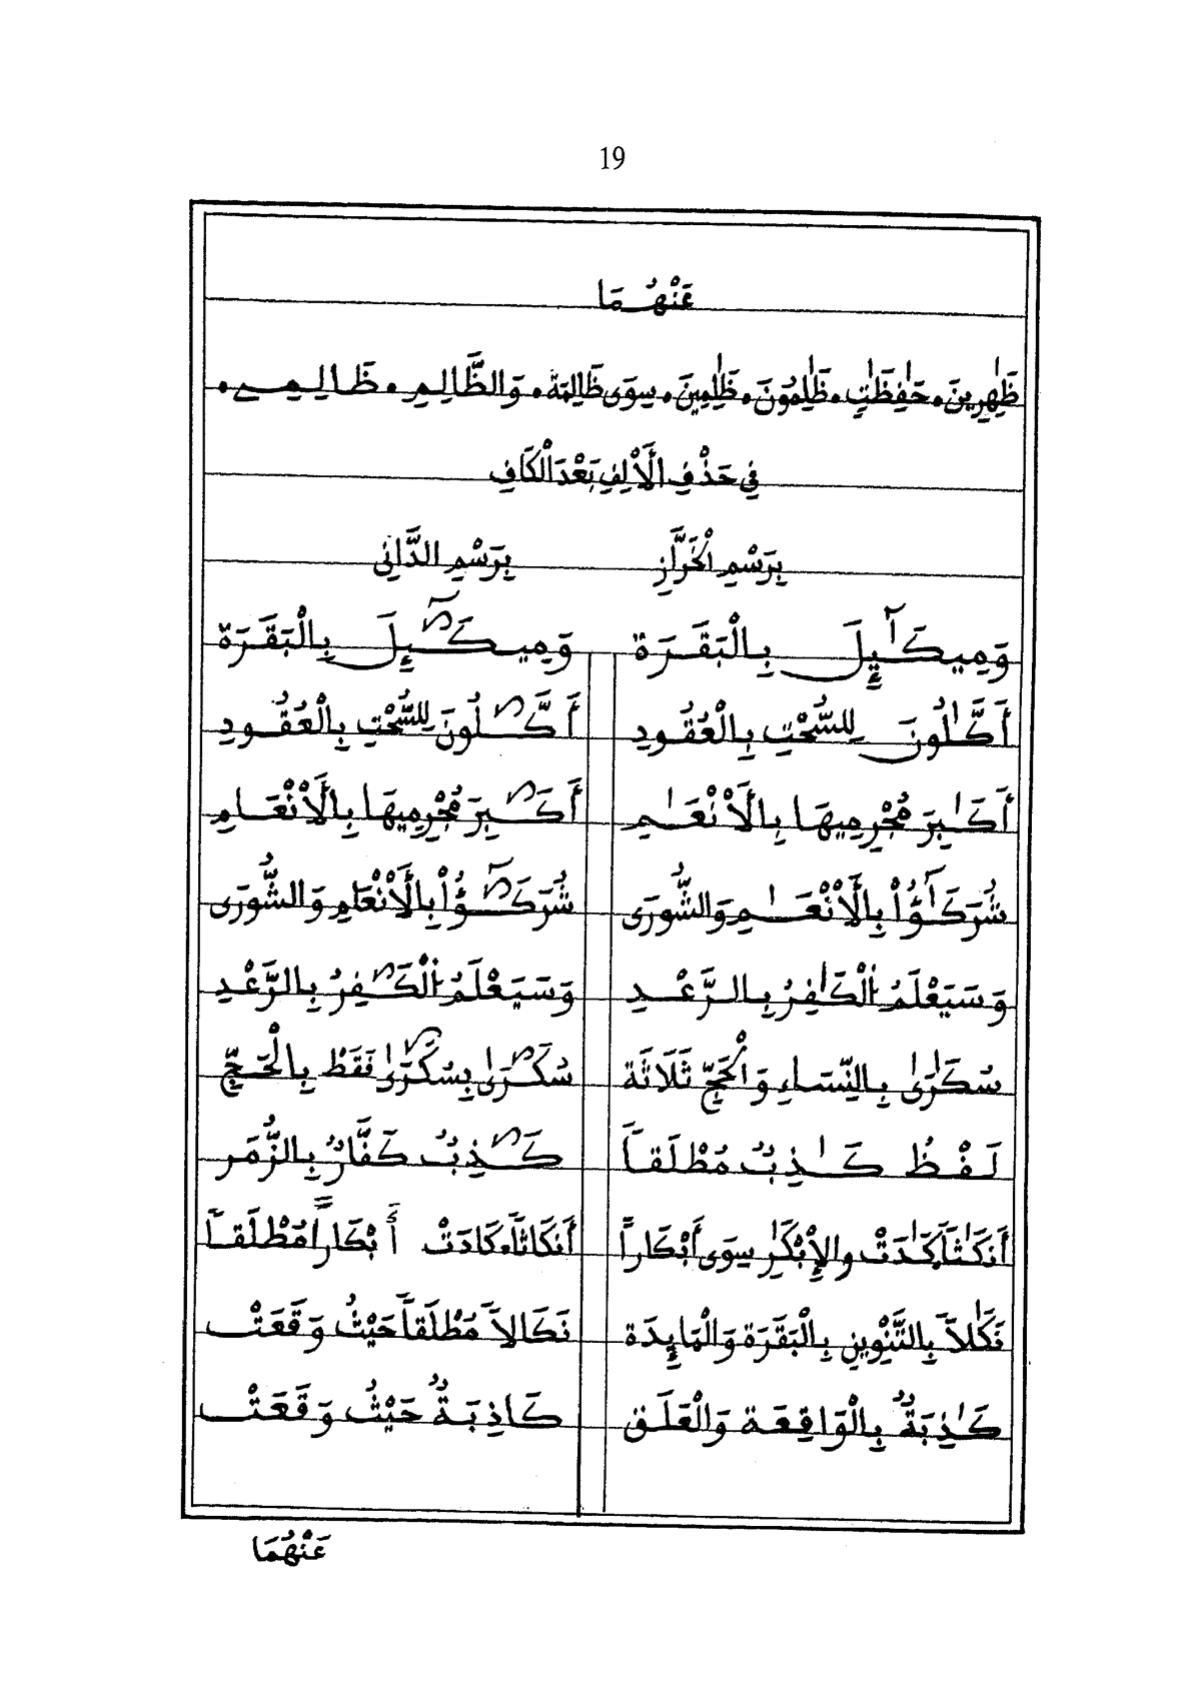 19
عَنْهُمَا
ظَٰهِرِينَ • حَٰفِظَٰتٍ • ظَٰلِمُونَ • ظَٰلِمِينَ • سِوَى ظَالِمَةٌ • وَالظَّالِمِ • ظَالِمِي •
فِي حَذْفِ الْأَلِفِ بَعْدَ الْكَافِ
بِرَسْمِ الْخَرَّازِ بِرَسْمِ الدَّانِي
وَمِيكَٰٓئِلَ بِالْبَقَرَةِ وَمِيكَٰٓئِلَ بِالْبَقَرَةِ
أَكَّٰلُونَ لِلسُّحْتِ بِالْعُقُودِ أَكَّٰلُونَ لِلسُّحْتِ بِالْعُقُودِ
أَكَٰبِرَ مُجْرِمِيهَا بِالْأَنْعَٰمِ أَكَٰبِرَ مُجْرِمِيهَا بِالْأَنْعَامِ
شُرَكَٰٓؤُاْ بِالْأَنْعَٰمِ وَالشُّورَى شُرَكَٰٓؤُاْ بِالْأَنْعَامِ وَالشُّورَى
وَسَيَعْلَمُ الْكَٰفِرُ بِالرَّعْدِ وَسَيَعْلَمُ الْكَٰفِرُ بِالرَّعْدِ
سُكَٰرَىٰ بِالنِّسَاءِ وَالْحَجِّ ثَلَاثَة سُكَٰرَىٰ بِسُكَٰرَىٰ فَقَطْ بِالْحَجِّ
لَفْظُ كَٰذِبٌ مُطْلَقاً كَٰذِبٌ كَفَّارٌ بِالزُّمَر
أَنكَٰثاً كَٰدَتْ والإِبْكَٰرِ سِوَى أَبْكَاراً أَنكَاثاً • كَادَتْ أَبْكَاراً مُطْلَقاً
نَكَٰلاً بِالتَّنْوِينِ بِالْبَقَرَة وَالْمَائِدَة نَكَالاً مُطْلَقاً حَيْثُ وَقَعَتْ
كَٰذِبَةٌ بِالْوَاقِعَة وَالْعَلَق كَاذِبَةٌ حَيْثُ وَقَعَتْ
عَنْهُمَا